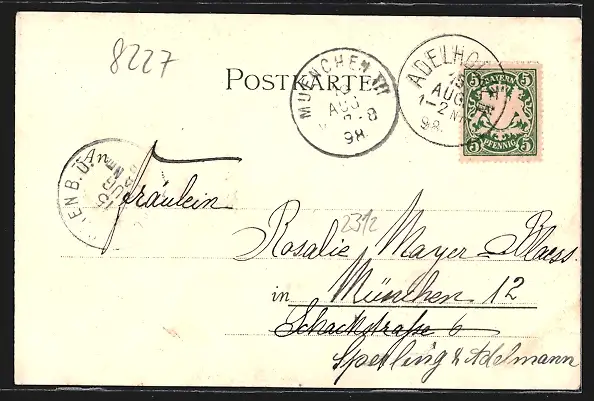 8227
POSTKARTE
MUENCHEN III
AUG
98
ADELHO
15
AUG
1-2 N
98
BAYERN
5 5
5 5
PFENNIG
EN B. Ü.
15
An
Fräulein
2312
Rosalie Mayer-Blaess.
in München 12
Schackstraße 6
Sperling & Adelmann